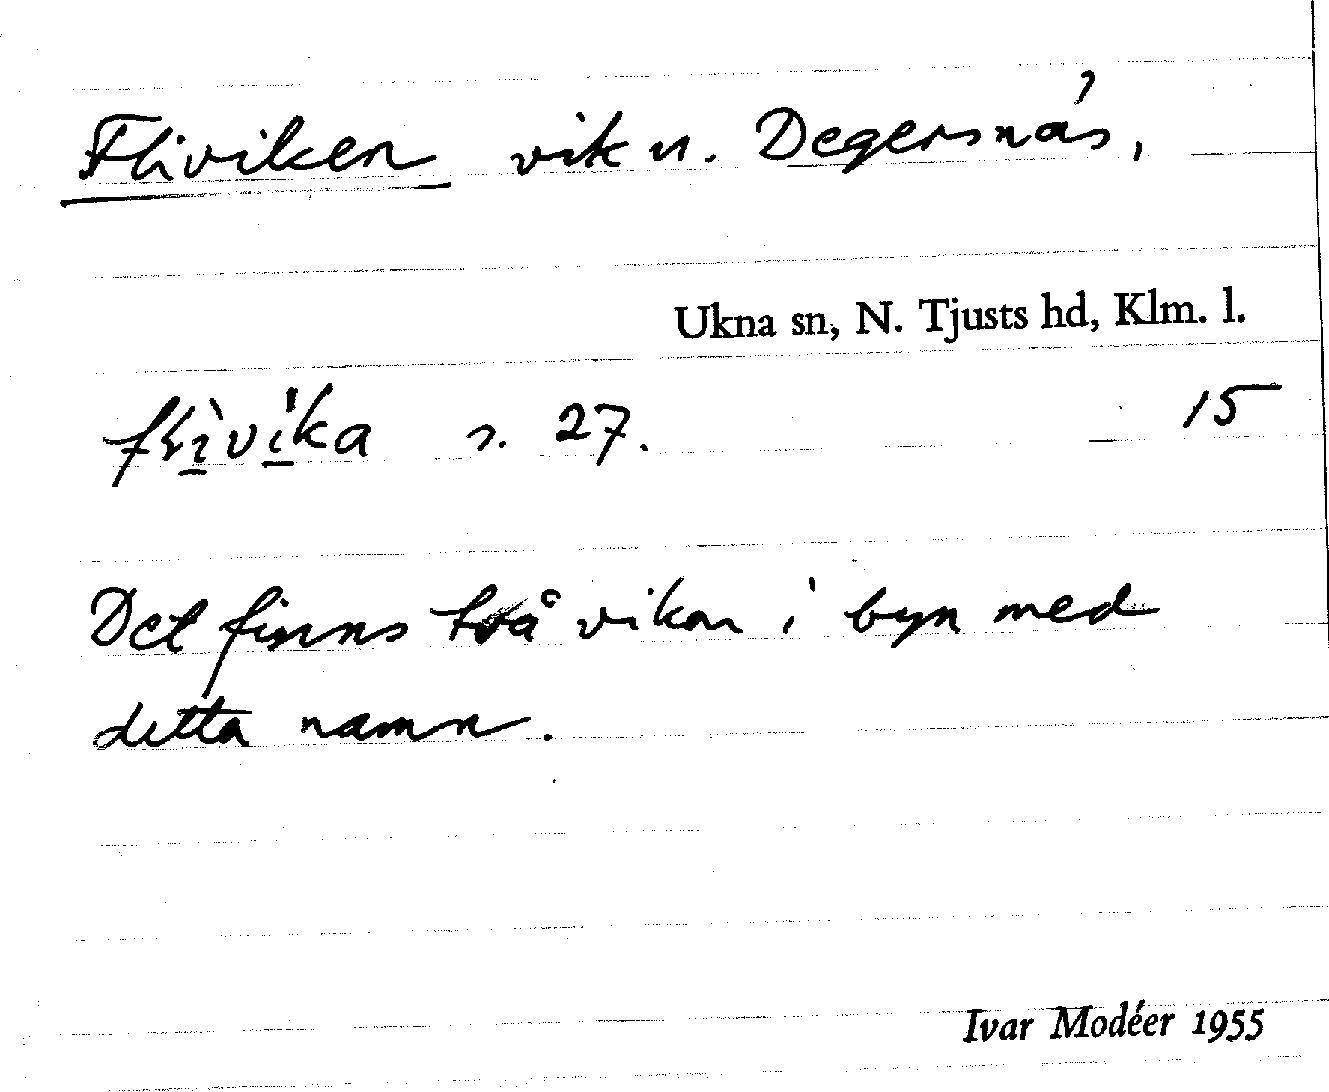 Fliviken vik n. Degersnäs,
Ukna sn, N. Tjusts hd, Klm. l.
s. 27. 15
Det finns två vikar i byn med
detta namn.
Ivar Modéer 1955